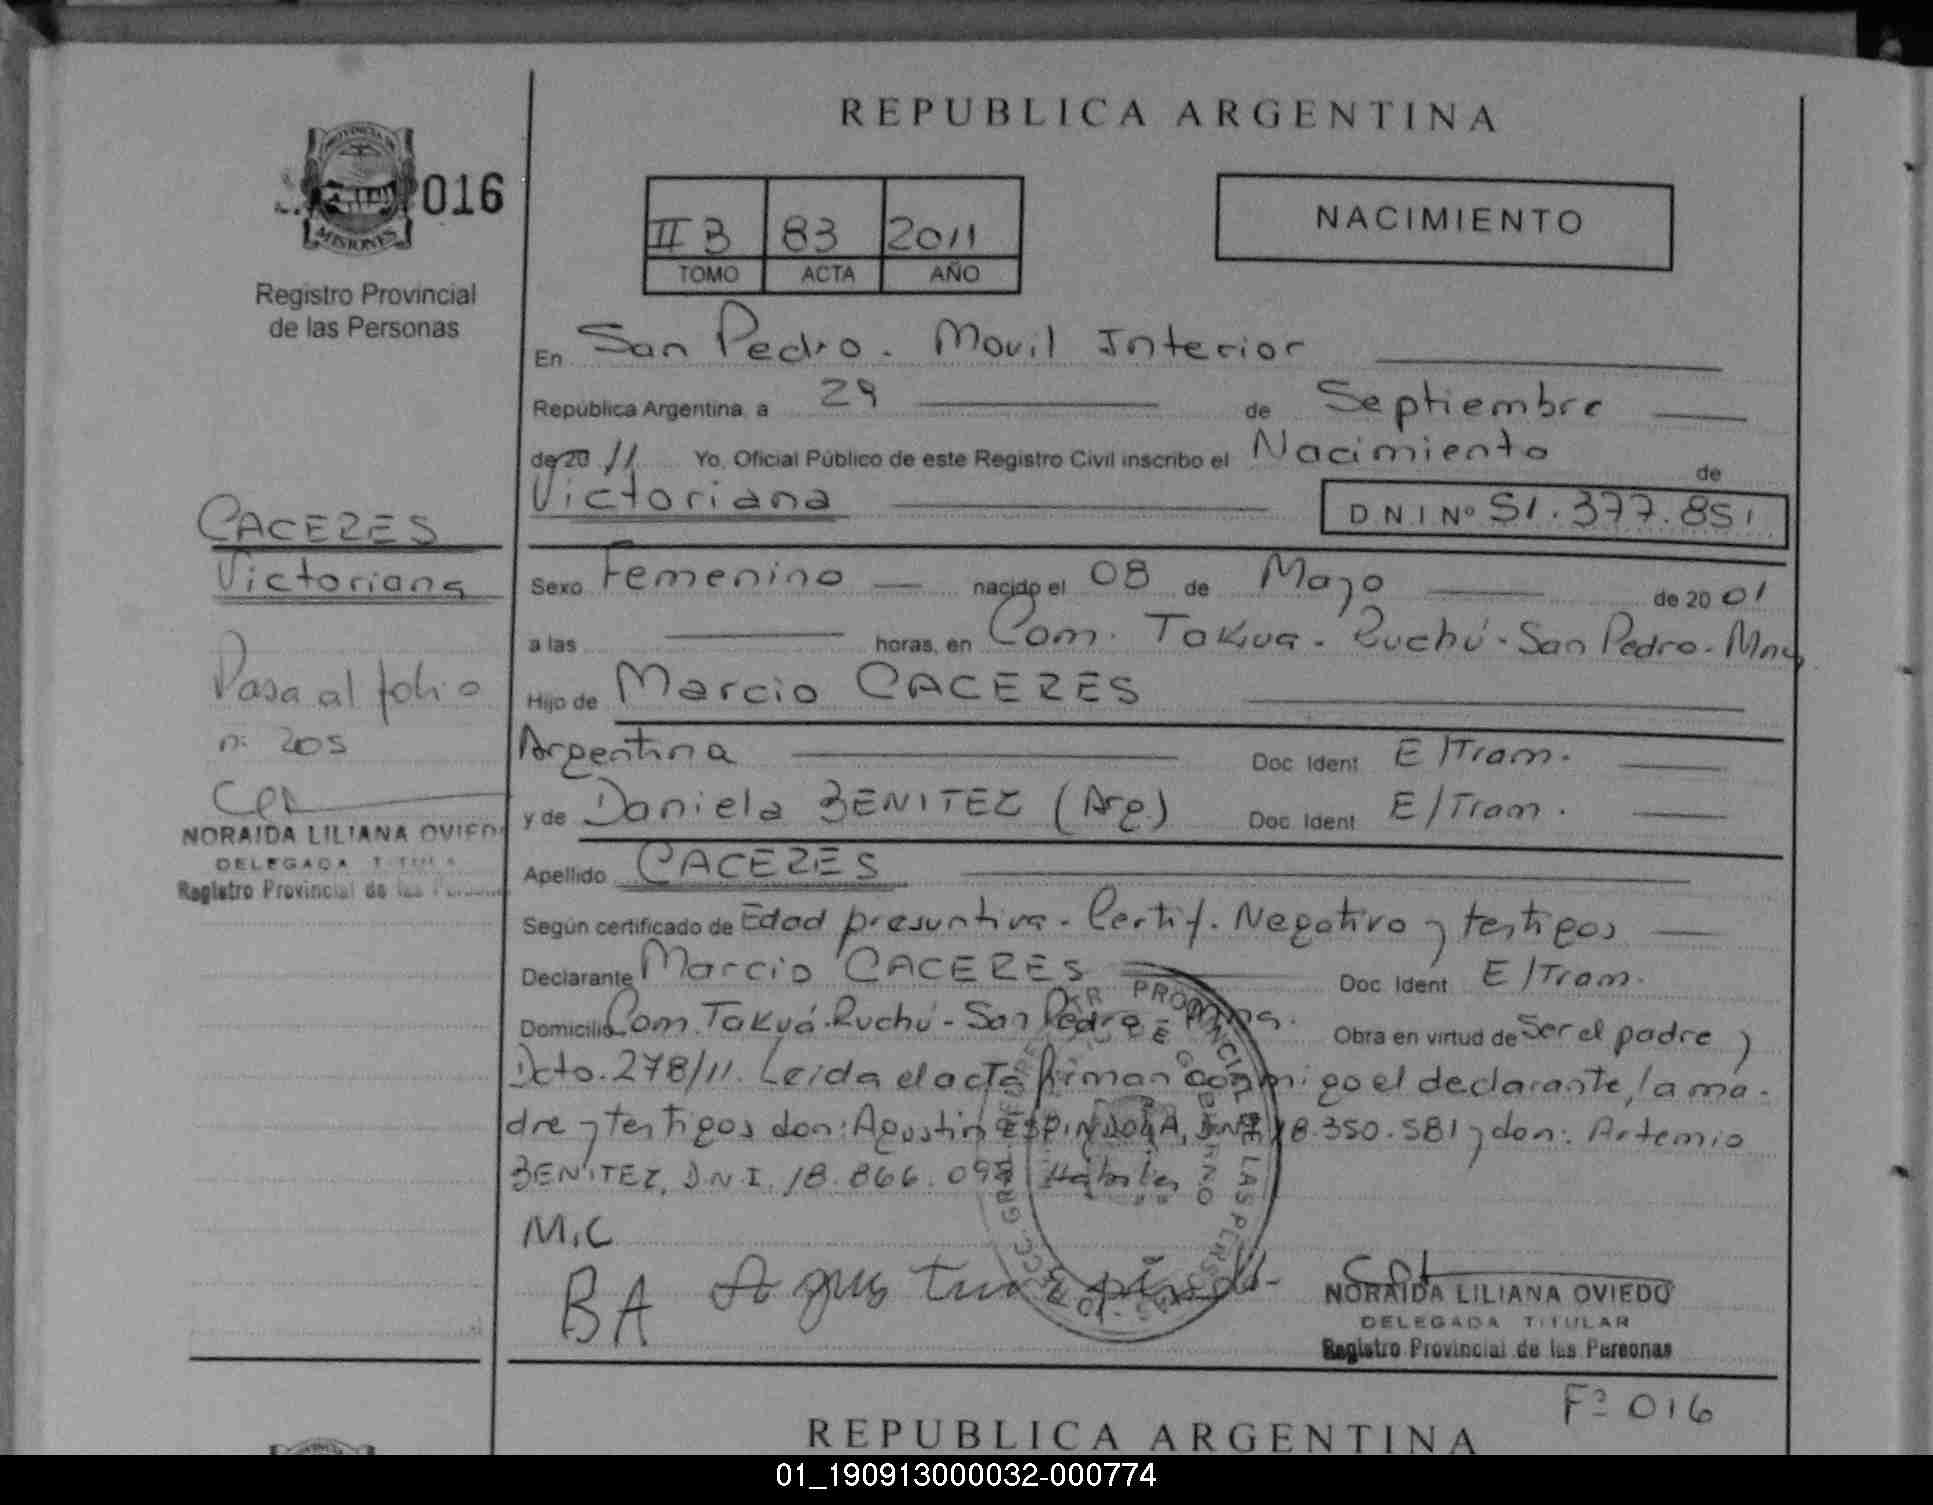 REPUBLICA ARGENTINA
PROVINCIA DE
MISIONES
016
Registro Provincial
de las Personas
II B 83 2011
TOMO ACTA AÑO
NACIMIENTO
En San Pedro. Movil Interior
República Argentina, a 29 de Septiembre
de 20 11 Yo, Oficial Público de este Registro Civil inscribo el Nacimiento
de
Victoriana
D N I Nº 51.377.851
CACERES
Victoriana
Sexo Femenino nacido el 08 de Mayo de 20 01
a las horas, en Com. Takua-Ruchú-San Pedro-Mnes
Hijo de Marcio CACERES
Pasa al folio
n: 205
Argentina Doc Ident E/Tram.
y de Daniela BENITEZ (Arg) Doc. Ident E/Tram.
NORAIDA LILIANA OVIEDO
DELEGADA TITULA
Registro Provincial de las Personas
Apellido CACERES
Según certificado de Edad presuntiva-Certif. Negativo y testigos
Declarante Marcio CACERES Doc Ident E/Tram.
Domicilio Com. Takuá-Ruchú-San Pedro-Mnes. Obra en virtud de Ser el padre y
Dcto. 278/11. Leída el acta firman conmigo el declarante, la ma-
dre y testigos don: Agustin ESPINDOLA, DNI 18.350.581 y don: Artemio
BENITEZ, D.N.I. 18.866.093 Hábiles
M.C
BA
NORAIDA LILIANA OVIEDO
DELEGADA TITULAR
Registro Provincial de las Personas
Fº 016
REPUBLICA ARGENTINA
01_190913000032-000774